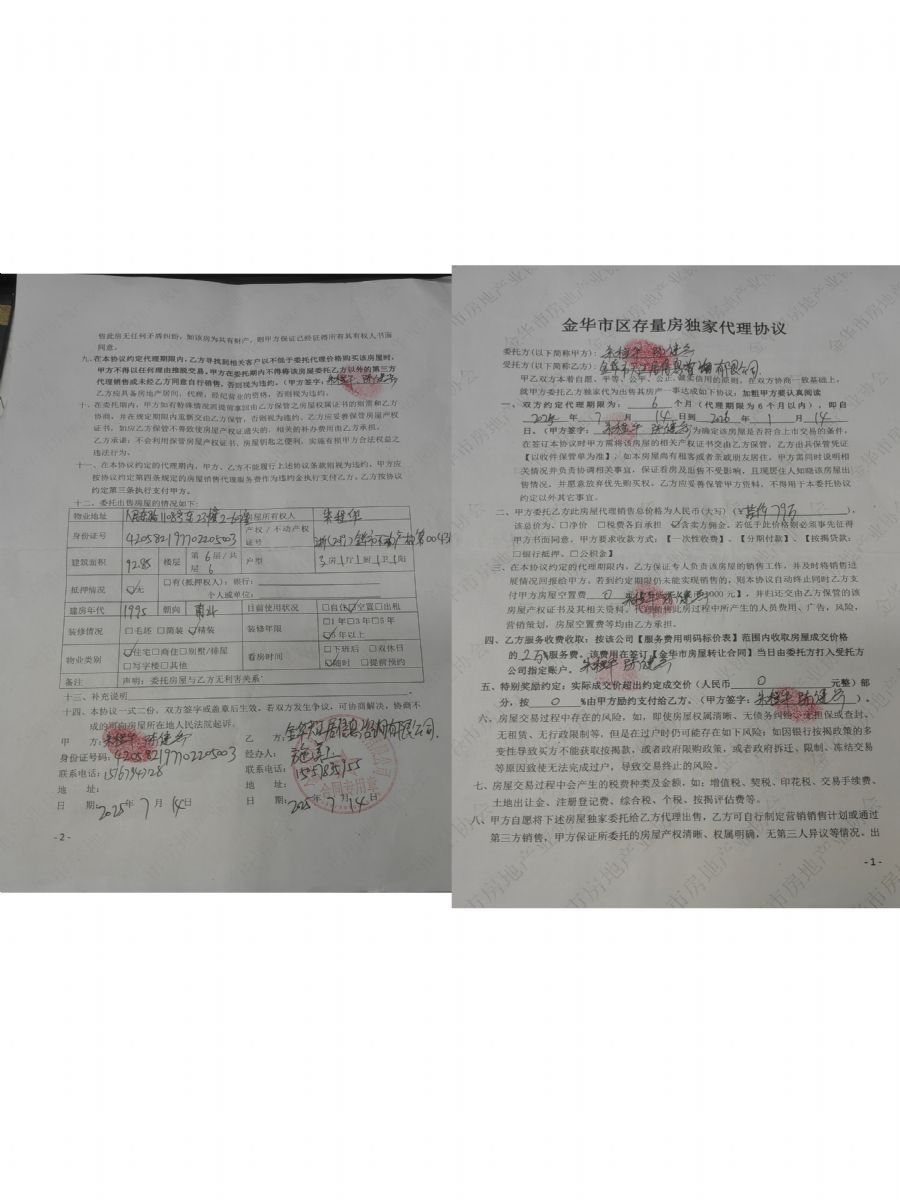 金华市区存量房独家代理协议
委托方(以下简称甲方):
受托方(以下简称乙方):金华市 有限公司
甲乙双方本着自愿、平等、公平、公正、诚实信用的原则,在双方协商一致基础上,
就甲方委托乙方独家代为出售其房产一事达成如下协议:加粗甲方要认真阅读
一、双方约定代理期限为: 6 个月(代理期限为6个月以内),即自
2025 年 7 月 14 日到 2026 年 1 月 14
日。(甲方签字: 为确定该房屋是否符合上市交易的条件,
在签订本协议时甲方需将该房屋的相关产权证书交由乙方保管,乙方出具保管凭证
【以收件保管单为准】,如本房屋尚有租客或者亲戚朋友居住,甲方需同时说明相
关情况并负责协调相关事宜,保证看房及出售不受影响,且现居住人知晓该房屋出
售情况,并愿意放弃优先购买权。乙方应妥善保管甲方资料,不得用于本委托协议
约定以外其它事宜。
二、甲方委托乙方此房屋代理销售总价格为人民币(大写)(¥ 79万 ),
该总价为、□净价 □税费各自承担 ☑含卖方佣金。若低于此价格则必须事先征得
甲方书面同意。甲方要求收款方式:【一次性收费】、【分期付款】、【按揭贷款:
□银行抵押、□公积金】
三、在本协议约定的代理期限内,乙方保证专人负责该房屋的销售工作,并及时将销售进
展情况回报给甲方,若到约定期限仍未能实现销售的,则本协议自动终止同时乙方支
付甲方房屋空置费 0 000 元】,并归还交由乙方保管的该
房屋产权证书及其相关资料。代理销售此房过程中所产生的人员费用、广告、风险,
营销策划,房屋空置费等均由乙方承担。
四、乙方服务费收费收取:按该公司【服务费用明码标价表】范围内收取房屋成交价格
的 2万 服务费。该费用在签订【金华市房屋转让合同】当日由委托方打入受托方
公司指定账户。
五、特别奖励约定:实际成交价超出约定成交价(人民币 0 元整)部
分,按 0 %由甲方励约支付给乙方。(甲方签字: ).
六、房屋交易过程中存在的风险。如,即使房屋权属清晰、无债务纠纷、无担保或查封、
无租赁、无行政限制等,但是在过户时仍可能存在如下风险:如因银行按揭政策的多
变性导致买方不能获取按揭款,或者政府限购政策,或者政府拆迁、限制、冻结交易
等原因致使无法完成过户,导致交易终止的风险。
七、房屋交易过程中会产生的税费种类及金额,如:增值税、契税、印花税、交易手续费、
土地出让金、注册登记费、综合税、个税、按揭评估费等。
八、甲方自愿将下述房屋独家委托给乙方代理出售,乙方可自行制定营销销售计划或通过
第三方销售,甲方保证所委托的房屋产权清晰、权属明确,无第三人异议等情况。出
- 1 -
售此房无任何矛盾纠纷,如该房为共有财产,则甲方保证已经征得所有共有权人书面
同意。
九、在本协议约定代理期限内,乙方寻找到相关客户以不低于委托代理价格购买该房屋时,
甲方不得以任何理由推脱交易。甲方在委托期内不得将该房屋委托乙方以外的第三方
代理销售或未经乙方同意自行销售,否则视为违约。(甲方签字:
乙方应具备房地产居间、代理、经纪营业的资格,否则视为违约。
十、在委托期内,甲方如有特殊情况需提前拿回由乙方保管之房屋权属证书的则需和乙方
协商,并在规定期限内重新交由乙方保管,否则视为违约。乙方应妥善保管房屋产权
证书,如应乙方保管不善致使房屋产权证遗失的,相关的补办费用由乙方承担。
乙方承诺:不会利用保管房屋产权证书、房屋钥匙之便利,实施有损甲方合法权益之
违法行为。
十一、在本协议约定的代理期内,甲方、乙方不能履行上述协议条款则视为违约,甲方应
按协议约定第四条规定的房屋销售代理服务费作为违约金执行支付乙方。乙方按协议
约定第三条执行支付甲方。
十二、委托出售房屋的情况如下:
物业地址 屋所有权人
身份证号 420582197702205003 产权/不动产权证号
建筑面积 92.85 楼层 第6层/共6层 户型 3房1厅1厨1卫1阳
抵押情况 ☑无 □有(抵押权人):银行:
个人或单位:
建房年代 1995 朝向 南北 目前使用状况 □自住☑空置□出租
装修情况 □毛坯 □简装 ☑精装 装修年限 □1年□3年□5年
☑6年以上
物业类别 ☑住宅□商住□别墅/排屋
□写字楼□其他 看房时间 □下班后 □双休日
☑随时 □提前预约
备注 声明:委托房屋与乙方无利害关系
十三、补充说明
十四、本协议一式二份,双方签字或盖章后生效。若双方发生争议,可协商解决,协商不
成的可向房屋所在地人民法院起诉。
甲 方: 乙 方: 有限公司
身份证号码:420582197702205003 经办人:
联系电话:15167947128 联系电话:
地 址: 地 址:
日 期:2025年 7 月 14日 日 期:2025年 7 月 14日
合同专用章
- 2 -